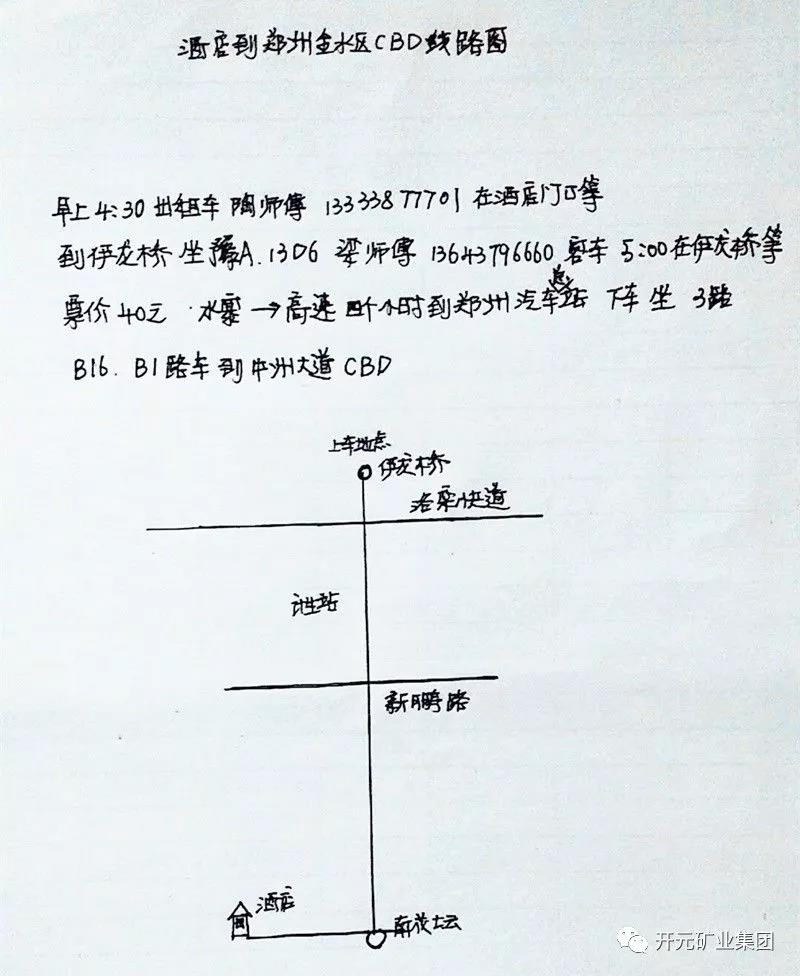 酒店到郑州金水区CBD线路图
早上4:30出租车 陶师傅 13333877701在酒店门口等
到伊龙桥 坐豫A.13D6 梁师傅 13643796660 客车 5:00在伊龙桥等
票价40元 水寨→高速四个小时到郑州汽车总站 下车 坐 3路
B16. B1路车到中州大道CBD
上车地点
伊龙桥
洛栾快道
计生站
新鹏路
酒店
开元矿业集团